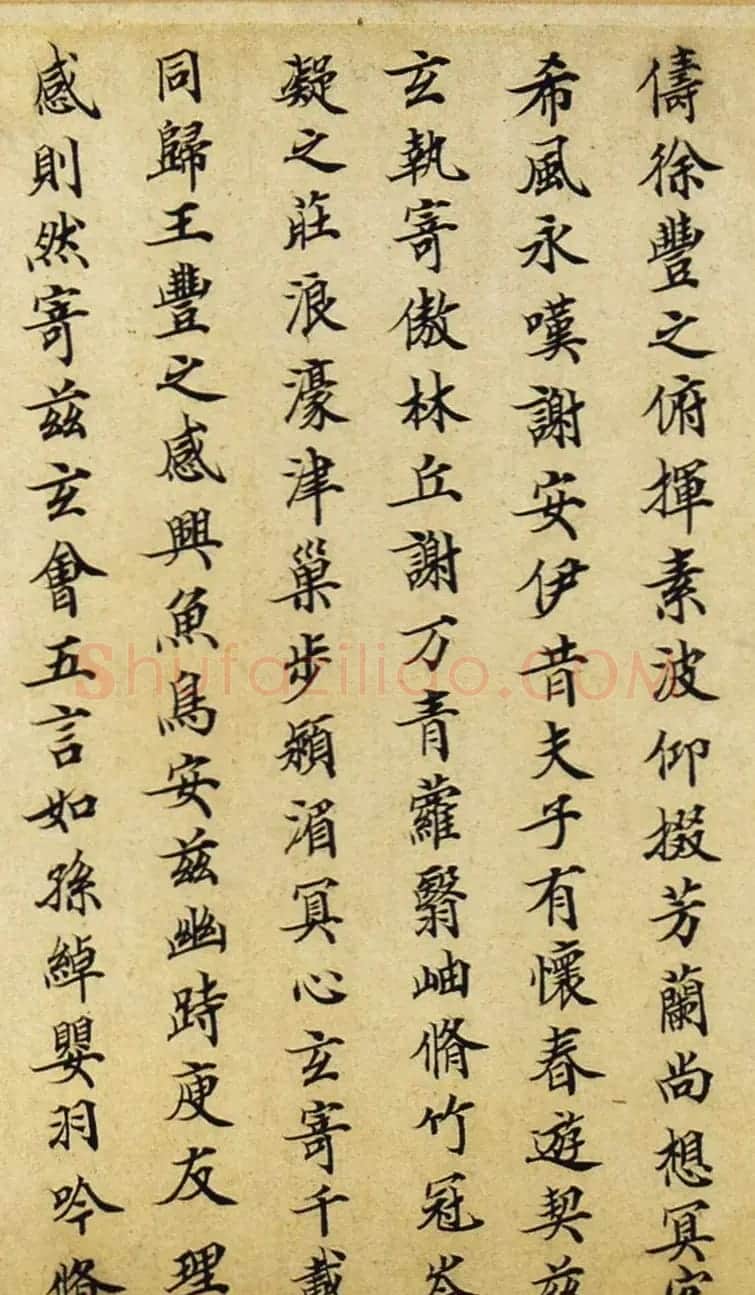 儔徐豐之俯揮素波仰掇芳蘭尚想冥
希風永嘆謝安伊昔夫子有懷春遊契茲
玄執寄傲林丘謝万青蘿翳岫脩竹冠岑
凝之莊浪濠津巢步潁湄冥心玄寄千載
同歸王豐之感興魚鳥安茲幽跱庾友理
感則然寄茲玄會五言如孫綽嬰羽吟脩
Shufaziliao.COM